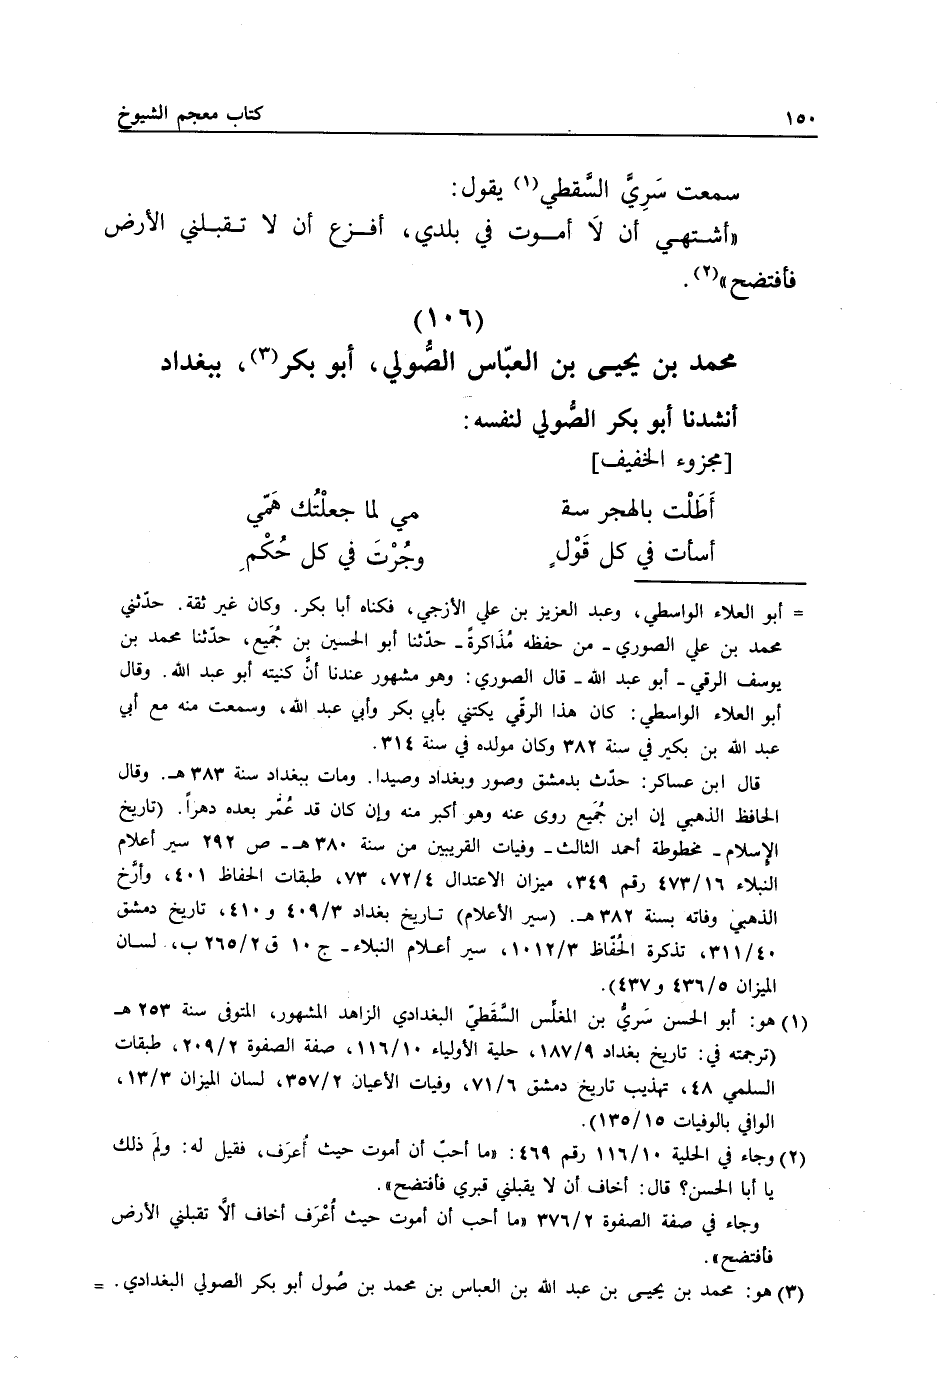 ١٥٠ كتاب معجم الشيوخ
سمعت سَرِيَّ السَّقطي(١) يقول:
«أشتهي أن لَا أموت في بلدي، أفزع أن لا تقبلني الأرض
فأفتضح»(٢).
(١٠٦)
محمد بن يحيى بن العبّاس الصُّولي، أبو بكر(٣)، ببغداد
أنشدنا أبو بكر الصُّولي لنفسه:
[مجزوء الخفيف]
أَطَلْت بالهجر سقـ مي لما جعلْتُك هَمّي
أسأت في كل قَوْلٍ وجُرْتَ في كل حُكْمِ
= أبو العلاء الواسطي، وعبد العزيز بن علي الأزجي، فكناه أبا بكر. وكان غير ثقة. حدّثني
محمد بن علي الصوري ـ من حفظه مُذَاكرةً ـ حدّثنا أبو الحسين بن جُمَيع، حدّثنا محمد بن
يوسف الرقي ـ أبو عبد الله ـ قال الصوري: وهو مشهور عندنا أنَّ كنيته أبو عبد الله. وقال
أبو العلاء الواسطي: كان هذا الرقّي يكتني بأبي بكر وأبي عبد الله، وسمعت منه مع أبي
عبد الله بن بكير في سنة ٣٨٢ وكان مولده في سنة ٣١٤.
قال ابن عساكر: حدّث بدمشق وصور وبغداد وصيدا. ومات ببغداد سنة ٣٨٣ هـ. وقال
الحافظ الذهبي إن ابن جُمَيع روى عنه وهو أكبر منه وإن كان قد عُمّر بعده دهراً. (تاريخ
الإسلام ـ مخطوطة أحمد الثالث ـ وفيات القريبين من سنة ٣٨٠ هـ ـ ص ٢٩٢ سير أعلام
النبلاء ٤٧٣/١٦ رقم ٣٤٩، ميزان الاعتدال ٧٢/٤، ٧٣، طبقات الحفاظ ٤٠١، وأرَّخ
الذهبي وفاته بسنة ٣٨٢ هـ. (سير الأعلام) تاريخ بغداد ٤٠٩/٣ و ٤١٠، تاريخ دمشق
٣١١/٤٠، تذكرة الحُفّاظ ١٠١٢/٣، سير أعلام النبلاء ـ ج ١٠ ق ٢٦٥/٢ ب، لسان
الميزان ٤٣٦/٥ و ٤٣٧).
(١) هو: أبو الحسن سَريُّ بن المغلّس السَّقَطيّ البغدادي الزاهد المشهور، المتوفى سنة ٢٥٣ هـ
(ترجمته في: تاريخ بغداد ١٨٧/٩، حلية الأولياء ١١٦/١٠، صفة الصفوة ٢٠٩/٢، طبقات
السلمي ٤٨، تهذيب تاريخ دمشق ٧١/٦، وفيات الأعيان ٣٥٧/٢، لسان الميزان ١٣/٣،
الوافي بالوفيات ١٣٥/١٥).
(٢) وجاء في الحلية ١١٦/١٠ رقم ٤٦٩: «ما أحبّ أن أموت حيث أُعرَف، فقيل له: ولمَ ذلك
يا أبا الحسن؟ قال: أخاف أن لا يقبلني قبري فأفتضح».
وجاء في صفة الصفوة ٣٧٦/٢ «ما أحب أن أموت حيث أُعْرَف أخاف ألاَّ تقبلني الأرض
فأفتضح».
(٣) هو: محمد بن يحيى بن عبد الله بن العباس بن محمد بن صُول أبو بكر الصولي البغدادي. =